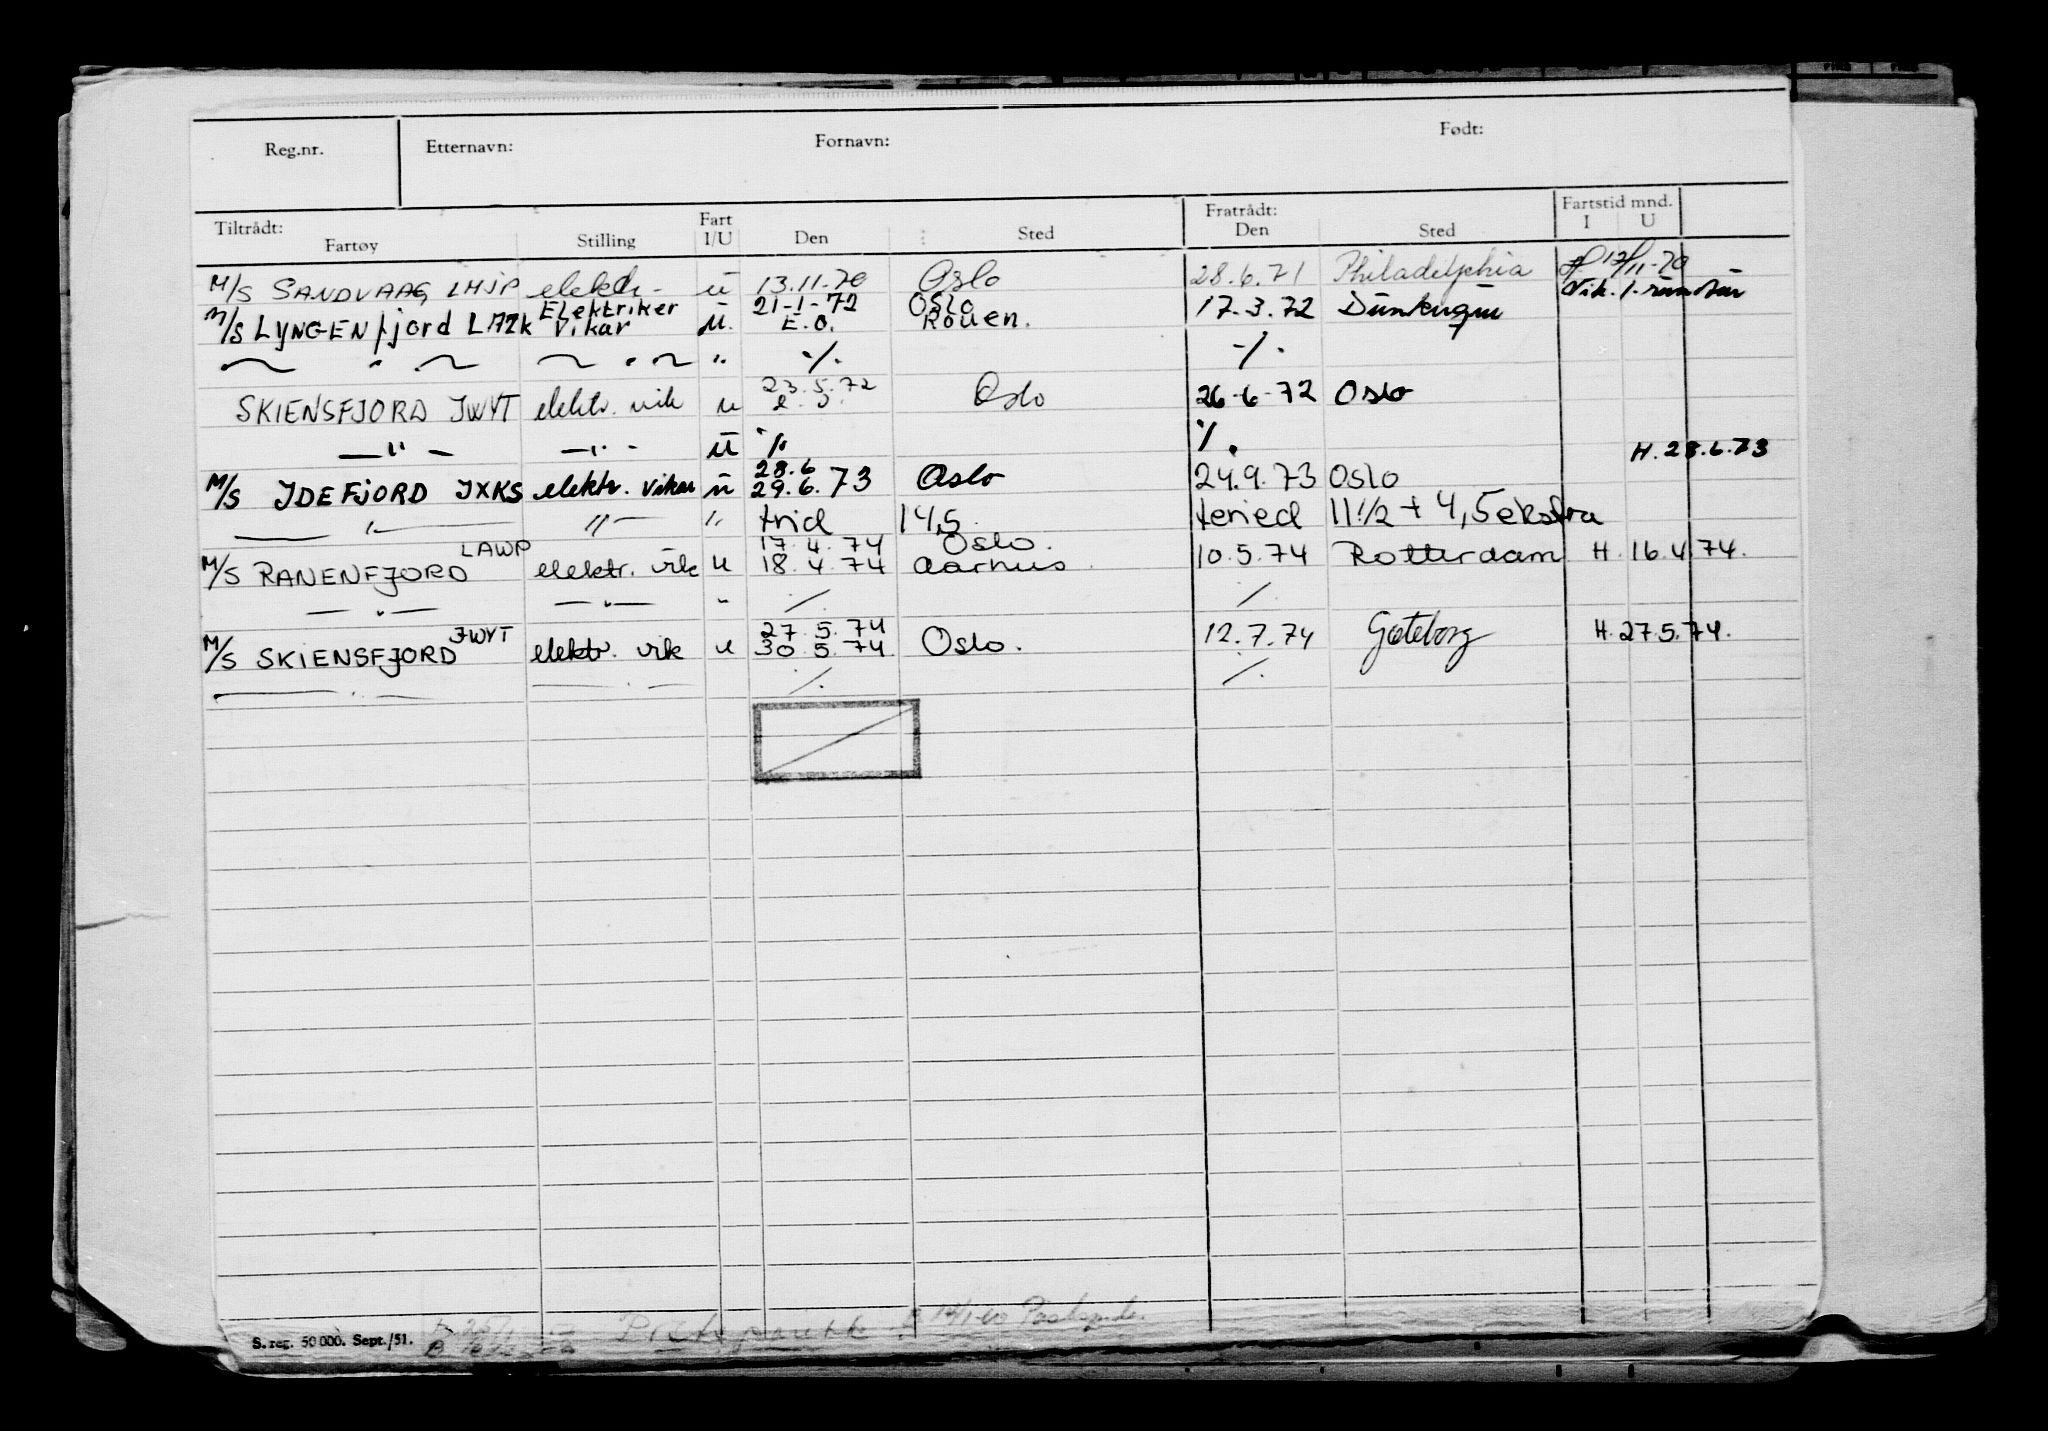 Reg.nr. Etternavn: Fornavn: Født:
Tiltrådt: Fart Fratrådt: Fartstid mnd.
Fartøy Stilling I/U Den Sted Den Sted I U
M/S SANDVAAG LHJP elektr. u 13.11.70 Oslo 28.6.71 Philadelphia 17/11-70
Elektriker 21-1-72 Oslo Vik. 1. rundtur
M/S LYNGENfjord LAZK Vikar u. E.O. Rouen. 17.3.72 Dunkerque
— " — — " — " ·/. ·/.
23.5.72
SKIENSFJORD JWYT elektr. vik u e.o. Oslo 26-6-72 Oslo
— " — — " — u ·/. ·/. H. 28.6.73
28.6
M/S IDEFJORD JXKS elektr. vikar u 29.6.73 Oslo 24.9.73 Oslo
— " — " — " frid 14,5 feried 11 1/2 + 4,5 ekstra
LAWP 17.4.74 Oslo.
M/S RANENFJORD elektr. vik u 18.4.74 Aarhus 10.5.74 Rotterdam H. 16.4.74.
— " — — " — " ·/. ·/.
JWYT 27.5.74
M/S SKIENSFJORD elektr. vik u 30.5.74 Oslo. 12.7.74 Gøteborg H. 27.5.74.
— " — — " — ·/. ·/.
S. reg. 50 000. Sept./51.